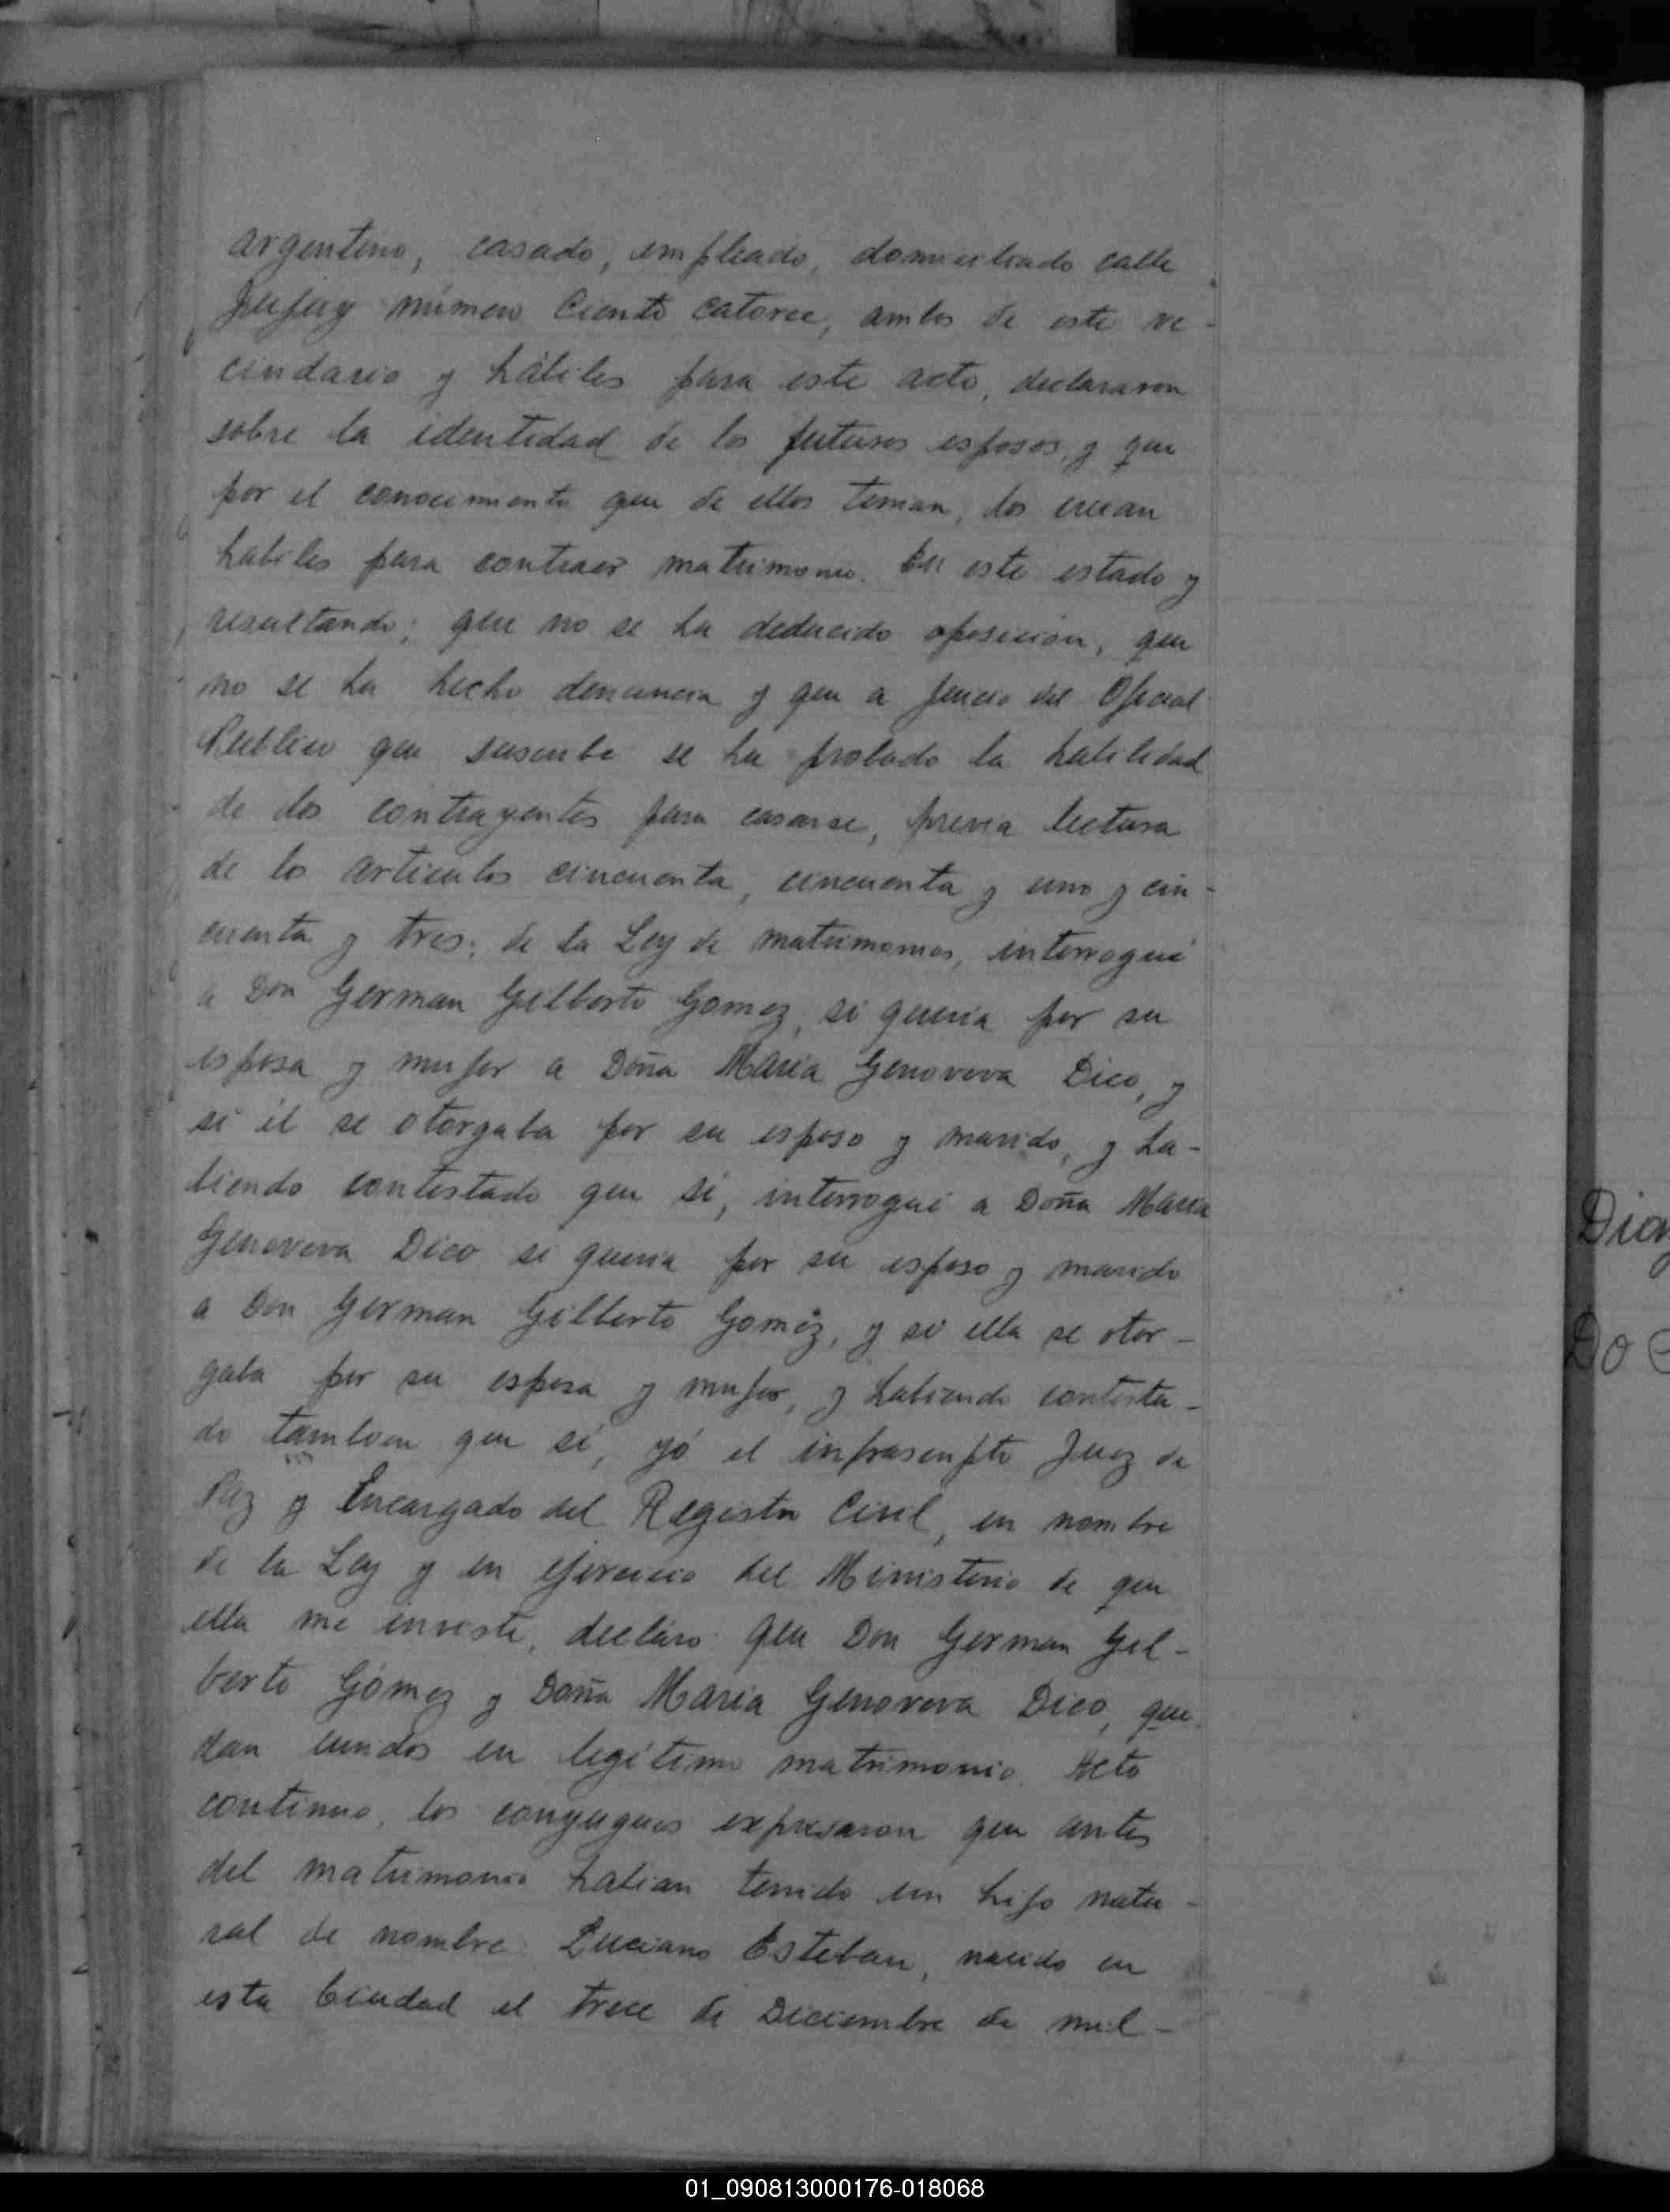 argentino, casado, empleado, domiciliado calle
Jujuy número Ciento catorce, ambos de este ve-
cindario y hábiles para este acto, declararon
sobre la identidad de los futuros esposos, y que
por el conocimiento que de ellos tenian, los creian
habiles para contraer matrimonio. En este estado y
resultando; que no se ha deducido oposición, que
no se ha hecho denuncia y que a juicio del Oficial
Publico que suscribe se ha probado la habilidad
de los contrayentes para casarse, previa lectura
de los articulos cincuenta, cincuenta y uno y cin-
cuenta y tres; de la Ley de matrimonios, interrogué
a Don German Gilberto Gomez, si queria por su
esposa y mujer a Doña Maria Genoveva Dico, y
si él se otorgaba por su esposo y marido, y ha-
biendo contestado que sí, interrogué a Doña Maria
Genoveva Dico si queria por su esposo y marido
a Don German Gilberto Gomez, y si ella se otor-
gaba por su esposa y mujer, y habiendo contesta-
do tambien que sí, yó el infrascripto Juez de
Paz y Encargado del Registro Civil, en nombre
de la Ley y en ejercicio del Ministerio de que
ella me inviste, declaro que Don German Gil-
berto Gómez y Doña Maria Genoveva Dico, que
dan unidos en legítimo matrimonio. Acto
continuo, los conyugues expresaron que antes
del matrimonio habian tenido un hijo natu-
ral de nombre: Luciano Esteban, nacido en
esta Ciudad el trece de Diciembre de mil-
01_090813000176-018068